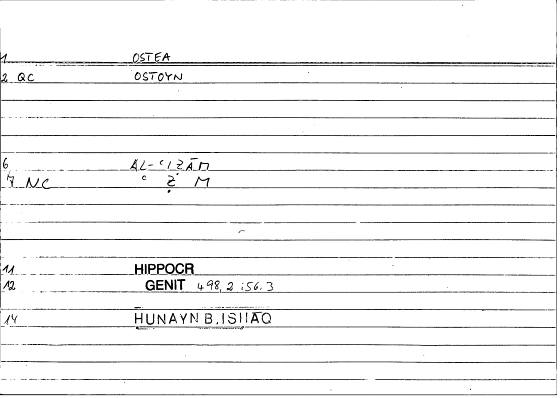 1 OSTEA
2 QC OSTOYN
6 AL-ʿIẒĀM
7 NC ʿ Ẓ M
11 HIPPOCR
12 GENIT 498,2 ; 56.3
14 HUNAYN B. ISHĀQ